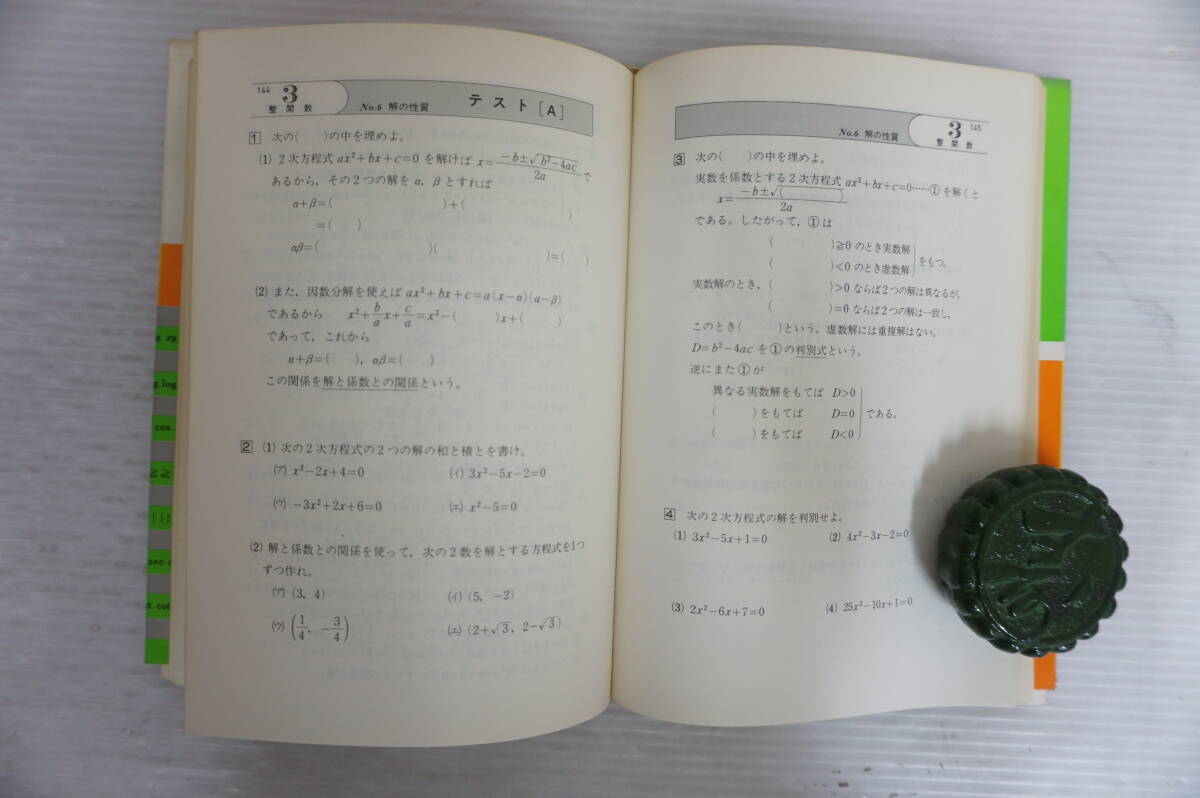 144
3
整関数
No.6 解の性質
テスト[A]
1 次の( )の中を埋めよ。
(1) 2次方程式 ax²+bx+c=0 を解けば x=(−b±√(b²−4ac))/2a で
あるから，その2つの解を α, β とすれば
α+β=( )+( )
=( )
αβ=( )( )=( )
(2) また，因数分解を使えば ax²+bx+c=a(x−α)(a−β)
であるから x²+b/a x+c/a=x²−( )x+( )
であって，これから
α+β=( ), αβ=( )
この関係を解と係数との関係という。
2 (1) 次の2次方程式の2つの解の和と積とを書け。
(ア) x²−2x+4=0 (イ) 3x²−5x−2=0
(ウ) −3x²+2x+6=0 (エ) x²−5=0
(2) 解と係数との関係を使って，次の2数を解とする方程式を1つ
ずつ作れ。
(ア) (3, 4) (イ) (5, −2)
(ウ) (1/4, −3/4) (エ) (2+√3, 2−√3)
No.6 解の性質
3
整関数
145
3 次の( )の中を埋めよ。
実数を係数とする2次方程式 ax²+bx+c=0……① を解くと
x=(−b±√( ))/2a
である。したがって，①は
( )≧0 のとき実数解
( )<0 のとき虚数解
をもつ。
実数解のとき，( )>0 ならば2つの解は異なるが，
( )=0 ならば2つの解は一致し，
このとき( )という。虚数解には重複解はない。
D=b²−4ac を①の判別式という。
逆にまた①が
異なる実数解をもてば D>0
( )をもてば D=0
である。
( )をもてば D<0
4 次の2次方程式の解を判別せよ。
(1) 3x²−5x+1=0 (2) 4x²−3x−2=0
(3) 2x²−6x+7=0 (4) 25x²−10x+1=0
g.log
cos.
≧≧
sec.
t. cot